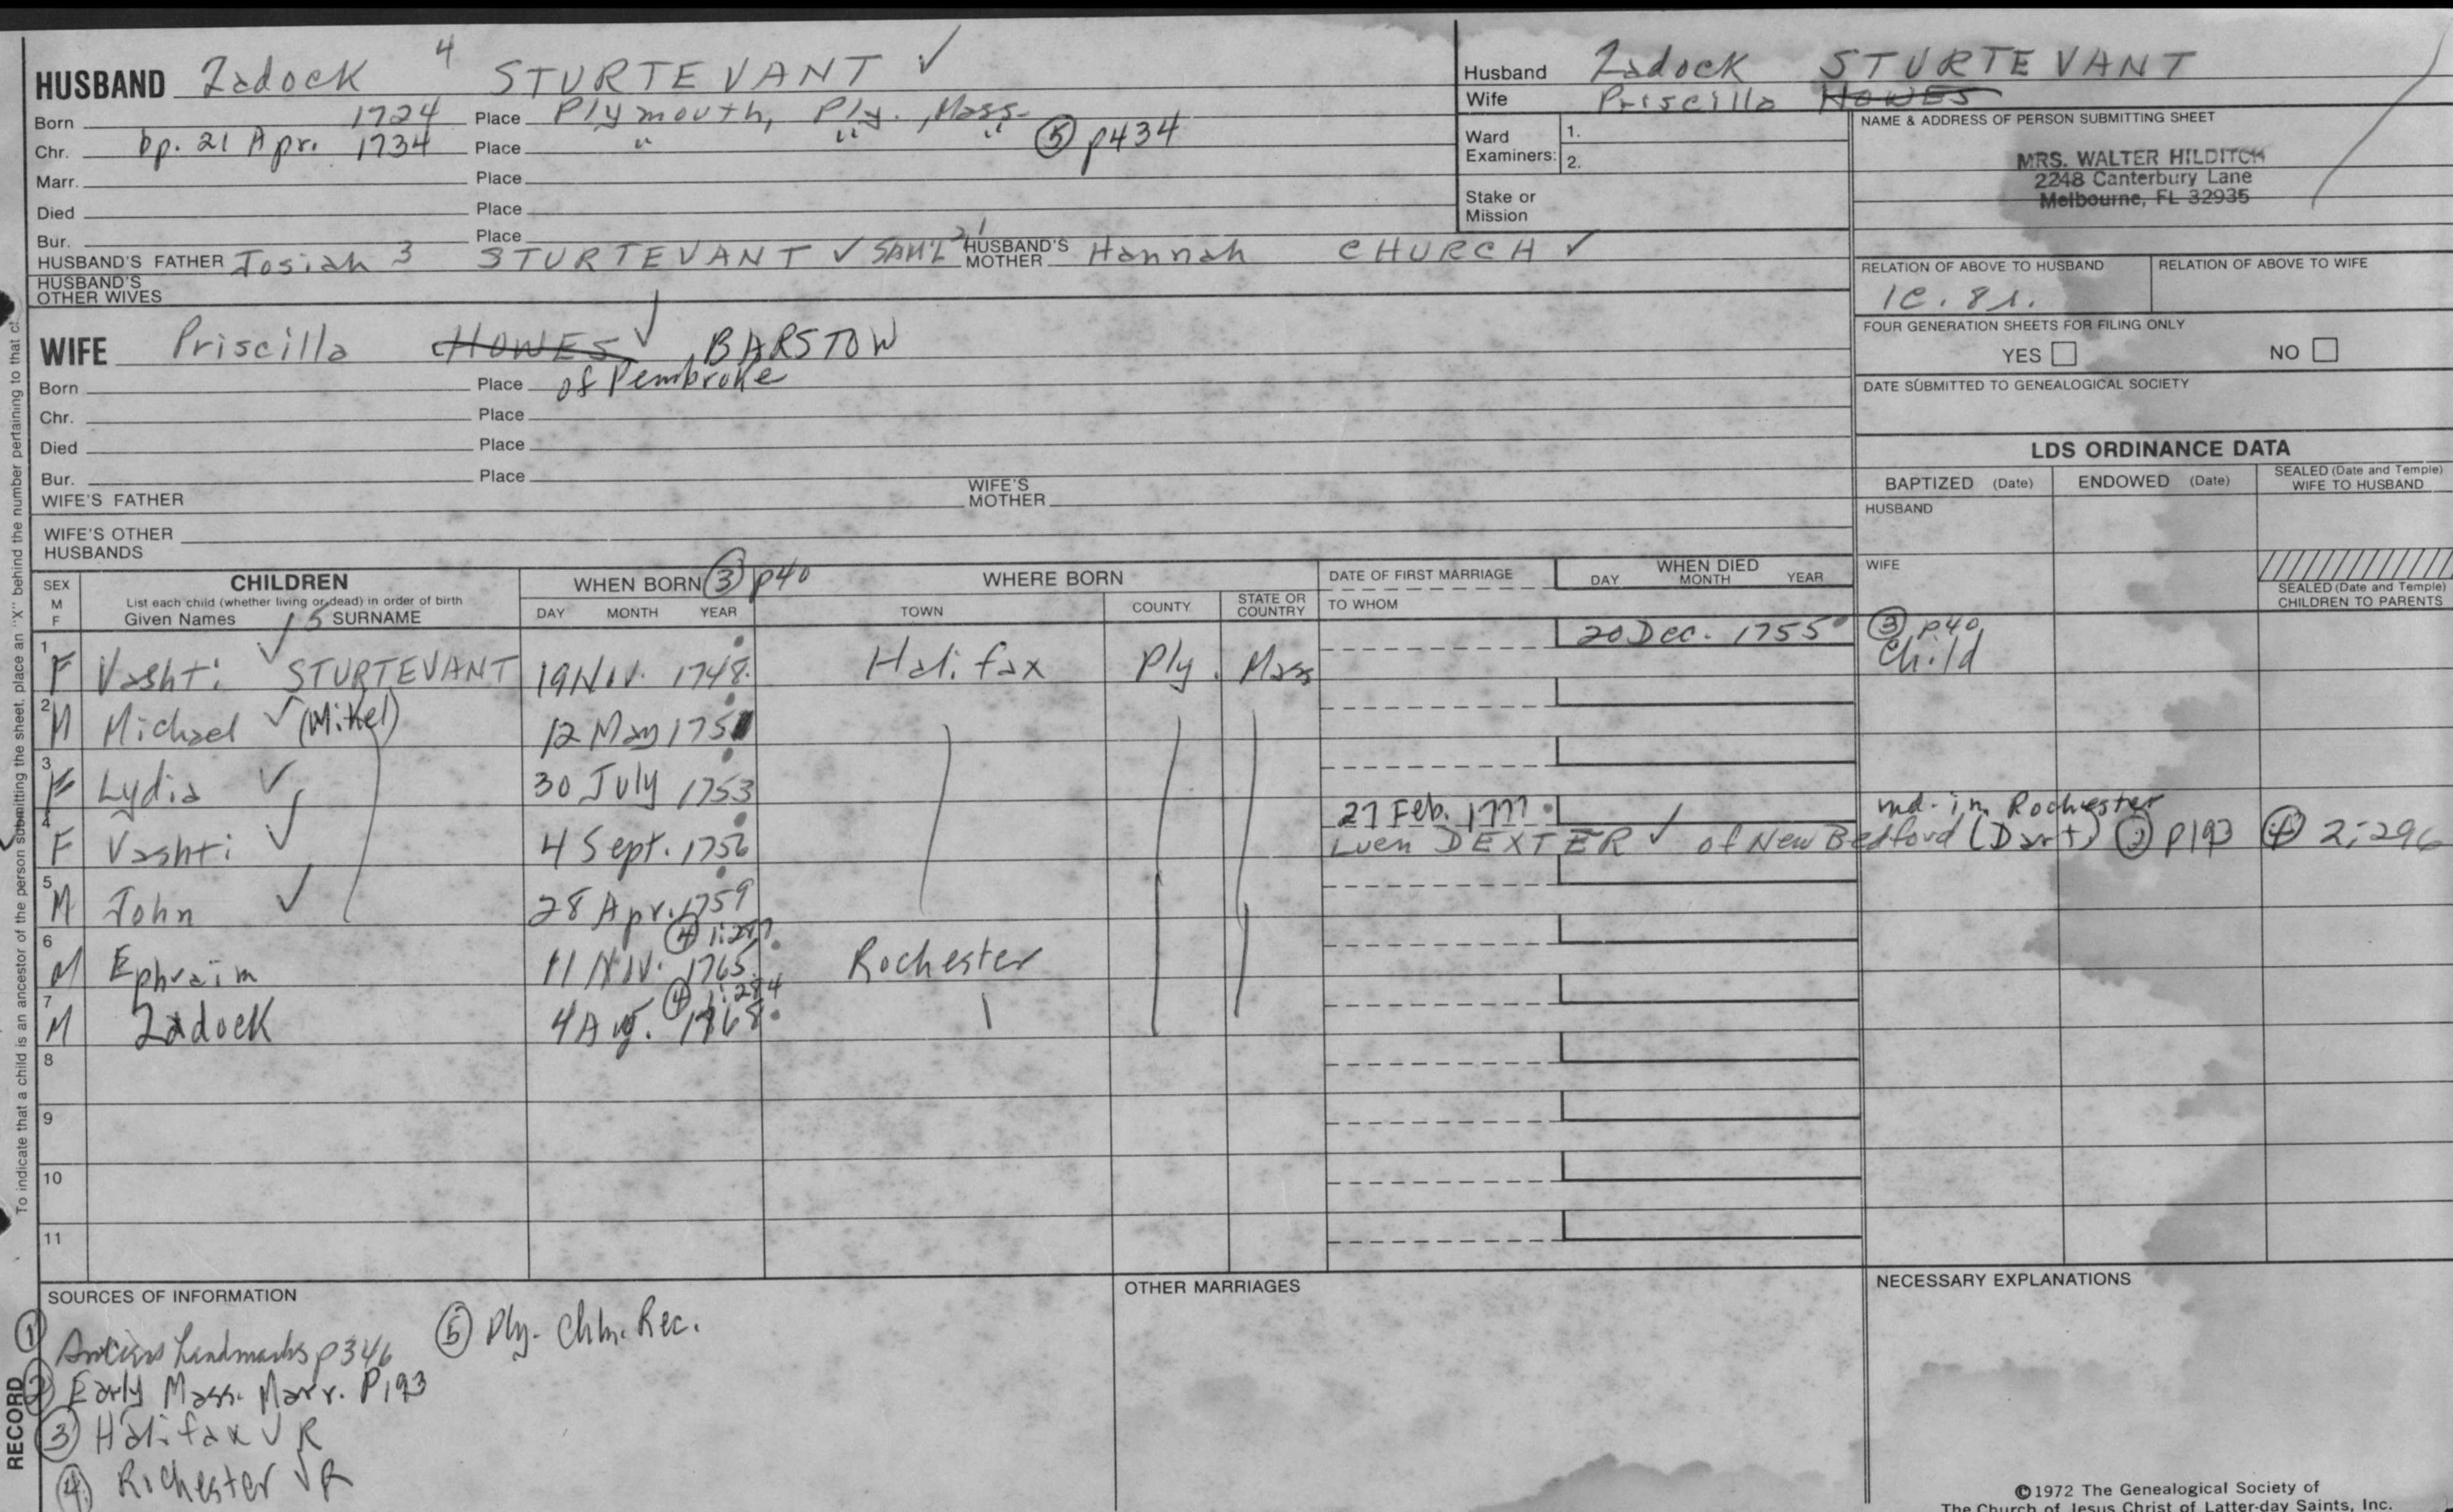 HUSBAND Zadock 4 STURTEVANT ✓
Born 1724 Place Plymouth, Ply., Mass.
Chr. bp. 21 Apr. 1734 Place " " " ⑤ p434
Marr. Place
Died Place
Bur. Place
HUSBAND'S FATHER Josiah 3 STURTEVANT ✓ SAM'L 2,1 HUSBAND'S MOTHER Hannah CHURCH ✓
HUSBAND'S OTHER WIVES
WIFE Priscilla HOWES ✓, BARSTOW
Born Place of Pembroke
Chr. Place
Died Place
Bur. Place
WIFE'S FATHER WIFE'S MOTHER
WIFE'S OTHER HUSBANDS
Husband Zadock STURTEVANT
Wife Priscilla HOWES
Ward Examiners: 1.
2.
Stake or Mission
NAME & ADDRESS OF PERSON SUBMITTING SHEET
MRS. WALTER HILDITCH
2248 Canterbury Lane
Melbourne, FL 32935
RELATION OF ABOVE TO HUSBAND RELATION OF ABOVE TO WIFE
1C. 8r.
FOUR GENERATION SHEETS FOR FILING ONLY
YES NO
DATE SUBMITTED TO GENEALOGICAL SOCIETY
LDS ORDINANCE DATA
BAPTIZED (Date) ENDOWED (Date) SEALED (Date and Temple) WIFE TO HUSBAND
HUSBAND
WIFE
SEALED (Date and Temple) CHILDREN TO PARENTS
SEX M F CHILDREN
List each child (whether living or dead) in order of birth
Given Names 5 SURNAME
WHEN BORN ③ p40
DAY MONTH YEAR
WHERE BORN
TOWN COUNTY STATE OR COUNTRY
DATE OF FIRST MARRIAGE
TO WHOM
WHEN DIED
DAY MONTH YEAR
1 F Vashti ✓ STURTEVANT 19 Nov. 1748 Halifax Ply. Mass 20 Dec. 1755 ③ p40 Child
2 M Michael ✓ (Mikel) 12 May 1751
3 F Lydia ✓ 30 July 1753
4 F Vashti ✓ 4 Sept. 1756 27 Feb. 1777 md. in Rochester
Luen DEXTER ✓ of New Bedford (Dart) ② p193 ④ 2:296
5 M John ✓ 28 Apr. 1759
6 M Ephraim 11 Nov. 1765 Rochester
7 M Zadock ④ 1:284 4 Aug. 1768
8
9
10
11
SOURCES OF INFORMATION
① Ancient Landmarks p346
② Early Mass. Marr. P193
③ Halifax VR
④ Rochester VR
⑤ Ply. Chh. Rec.
OTHER MARRIAGES
NECESSARY EXPLANATIONS
To indicate that a child is an ancestor of the person submitting the sheet, place an "X" behind the number pertaining to that
RECORD
©1972 The Genealogical Society of
The Church of Jesus Christ of Latter-day Saints, Inc.